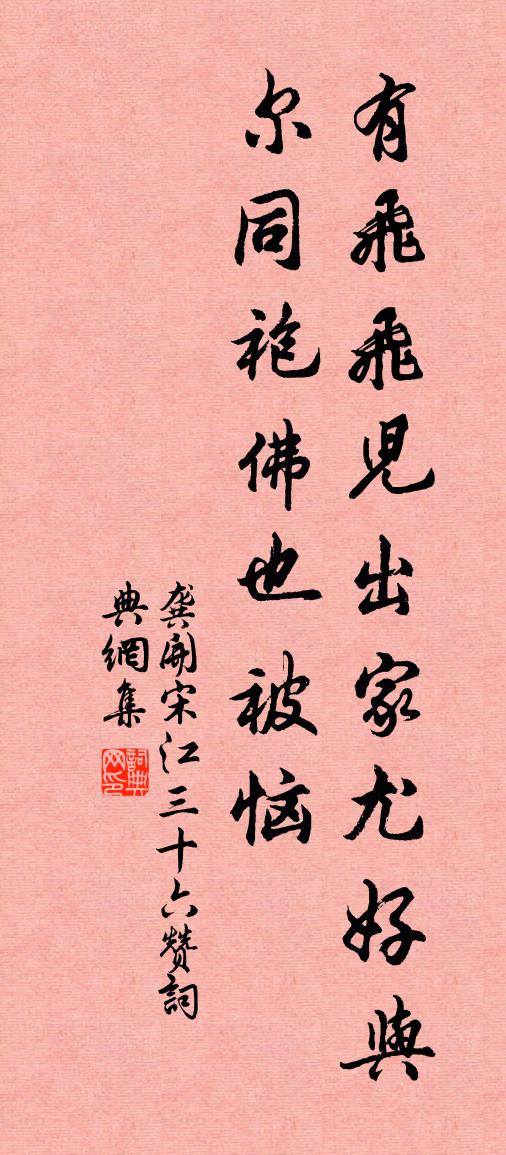 有飛飛児出家尤好與
尔同袍佛也被恼
龚開宋江三十六赞詞
典網集
詞典
网印